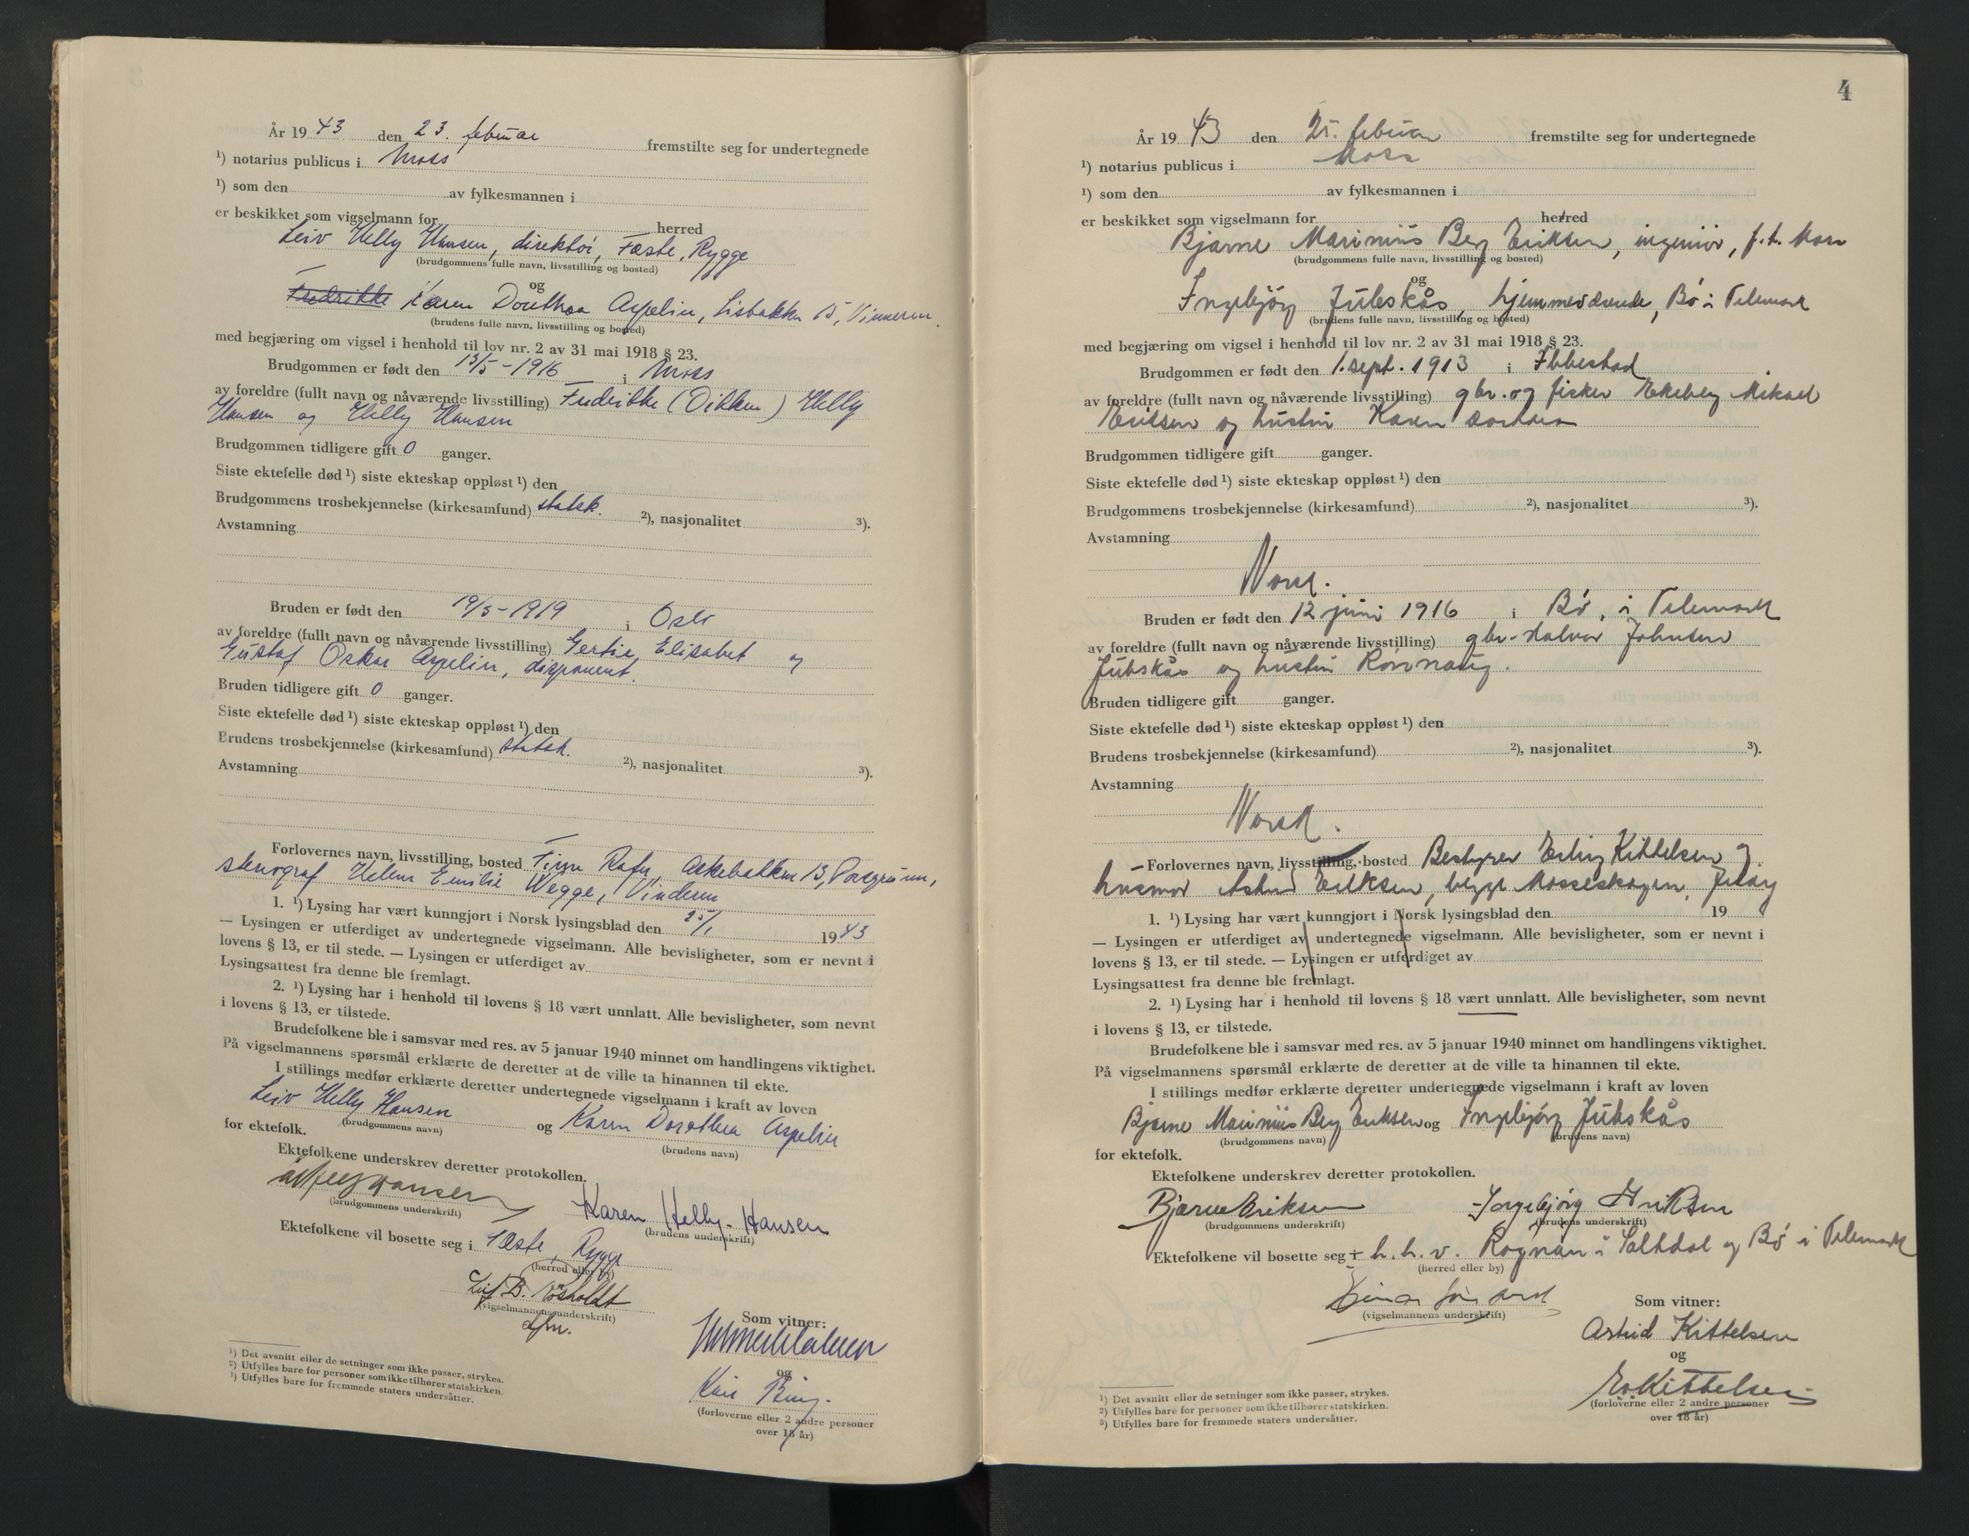 År 19 43 den 23. februar fremstilte seg for undertegnede
¹) notarius publicus i Moss
¹) som den av fylkesmannen i
er beskikket som vigselmann for herred
Leiv Helly Hansen, direktør, Fæste, Rygge
(brudgommens fulle navn, livsstilling og bosted)
og
Fredrikke Karen Dorothea Aspelin, Lisbakken 15, Vinneren.
(brudens fulle navn, livsstilling og bosted)
med begjæring om vigsel i henhold til lov nr. 2 av 31 mai 1918 § 23.
Brudgommen er født den 13/5-1916 i Moss
av foreldre (fullt navn og nåværende livsstilling) Fredrikke (Dikken) Helly
Hansen og Helly Hansen
Brudgommen tidligere gift 0 ganger.
Siste ektefelle død ¹) siste ekteskap oppløst ¹) den
Brudgommens trosbekjennelse (kirkesamfund) statsk. ²), nasjonalitet ³).
Avstamning
Bruden er født den 19/5-1919 i Oslo
av foreldre (fullt navn og nåværende livsstilling) Gertie Elisabet og
Gustaf Oskar Aspelin, disponent.
Bruden tidligere gift 0 ganger.
Siste ektefelle død ¹) siste ekteskap oppløst ¹) den
Brudens trosbekjennelse (kirkesamfund) statsk. ²), nasjonalitet ³).
Avstamning
Forlovernes navn, livsstilling, bosted Finn Rafn, Askebakken 13, Porsgrunn,
stenograf Helene Emilie Wegge, Vinderen
1. ¹) Lysing har vært kunngjort i Norsk lysingsblad den 25/1 1943
— Lysingen er utferdiget av undertegnede vigselmann. Alle bevisligheter, som er nevnt i
lovens § 13, er til stede. — Lysingen er utferdiget av
Lysingsattest fra denne ble fremlagt.
2. ¹) Lysing har i henhold til lovens § 18 vært unnlatt. Alle bevisligheter, som nevnt
i lovens § 13, er tilstede.
Brudefolkene ble i samsvar med res. av 5 januar 1940 minnet om handlingens viktighet.
På vigselmannens spørsmål erklærte de deretter at de ville ta hinannen til ekte.
I stillings medfør erklærte deretter undertegnede vigselmann i kraft av loven
Leiv Helly Hansen og Karen Dorothea Aspelin
(brudgommens navn) (brudens navn)
for ektefolk.
Ektefolkene underskrev deretter protokollen.
Karen Helly-Hansen
(brudgommens underskrift) (brudens underskrift)
Ektefolkene vil bosette seg i Fæste, Rygge
(herred eller by)
Leif B.
(vigselmannens underskrift)
Som vitner:
og
(forloverne eller 2 andre personer
over 18 år)
¹) Det avsnitt eller de setninger som ikke passer, strykes.
²) Utfylles bare for personer som ikke tilhører statskirken.
³) Utfylles bare for fremmede staters undersåtter.
4
År 19 43 den 25. februar fremstilte seg for undertegnede
¹) notarius publicus i Moss
¹) som den av fylkesmannen i
er beskikket som vigselmann for herred
Bjarne Marinius Berg Eriksen, ingeniør, f.t. Moss
(brudgommens fulle navn, livsstilling og bosted)
og
Ingebjørg Jubskås, hjemmeværende, Bø i Telemark
(brudens fulle navn, livsstilling og bosted)
med begjæring om vigsel i henhold til lov nr. 2 av 31 mai 1918 § 23.
Brudgommen er født den 1. sept. 1913 i Ibbestad
av foreldre (fullt navn og nåværende livsstilling) gbr. og fisker Ekeberg Mikael
Eriksen og hustru Karen
Brudgommen tidligere gift ganger.
Siste ektefelle død ¹) siste ekteskap oppløst ¹) den
Brudgommens trosbekjennelse (kirkesamfund) ²), nasjonalitet ³).
Avstamning
Norsk.
Bruden er født den 12 juni 1916 i Bø, i Telemark
av foreldre (fullt navn og nåværende livsstilling) gbr. Halvor Johnsen
Jubskås og hustru Rønnaug.
Bruden tidligere gift ganger.
Siste ektefelle død ¹) siste ekteskap oppløst ¹) den
Brudens trosbekjennelse (kirkesamfund) ²), nasjonalitet ³).
Avstamning
Norsk.
Forlovernes navn, livsstilling, bosted Bestyrer Erling Kittelsen og
husmor Astrid Eriksen, begge Mosseskogen, Jeløy
1. ¹) Lysing har vært kunngjort i Norsk lysingsblad den 19
— Lysingen er utferdiget av undertegnede vigselmann. Alle bevisligheter, som er nevnt i
lovens § 13, er til stede. — Lysingen er utferdiget av
Lysingsattest fra denne ble fremlagt.
2. ¹) Lysing har i henhold til lovens § 18 vært unnlatt. Alle bevisligheter, som nevnt
i lovens § 13, er tilstede.
Brudefolkene ble i samsvar med res. av 5 januar 1940 minnet om handlingens viktighet.
På vigselmannens spørsmål erklærte de deretter at de ville ta hinannen til ekte.
I stillings medfør erklærte deretter undertegnede vigselmann i kraft av loven
Bjarne Marinius Berg Eriksen og Ingebjørg Jubskås
(brudgommens navn) (brudens navn)
for ektefolk.
Ektefolkene underskrev deretter protokollen.
Bjarne Eriksen Ingebjørg Eriksen
(brudgommens underskrift) (brudens underskrift)
Ektefolkene vil bosette seg i h.h.v. Rognan i Saltdal og Bø i Telemark
(herred eller by)
(vigselmannens underskrift)
Som vitner:
Astrid Kittelsen
og
E. Kittelsen
(forloverne eller 2 andre personer
over 18 år)
¹) Det avsnitt eller de setninger som ikke passer, strykes.
²) Utfylles bare for personer som ikke tilhører statskirken.
³) Utfylles bare for fremmede staters undersåtter.